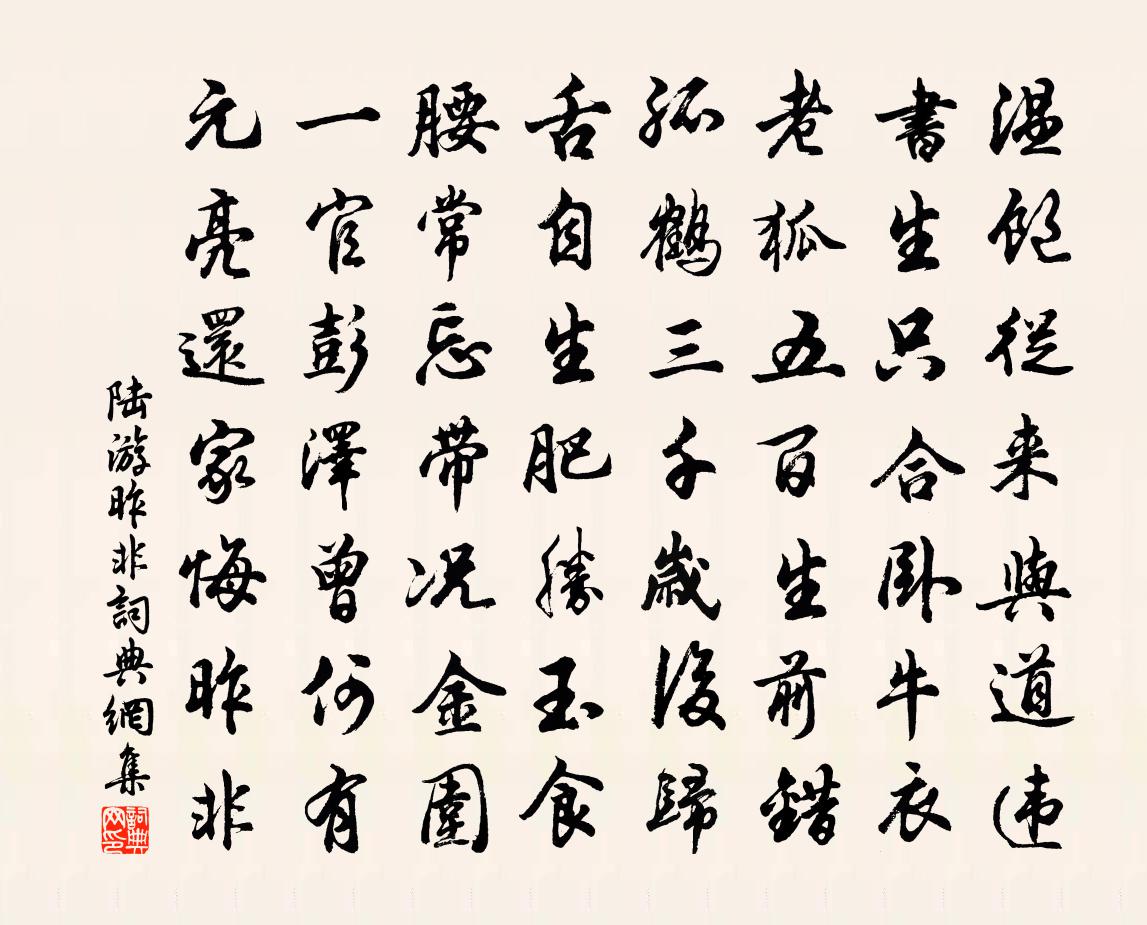 溫飽從来與道违
書生只合卧牛衣
老狐五百生前錯
孤鶴三千歲後歸
舌自生肥勝玉食
腰常忘带况金圍
一官彭澤曾何有
元亮還家悔昨非
陆游昨非詞典網集
詞典网印